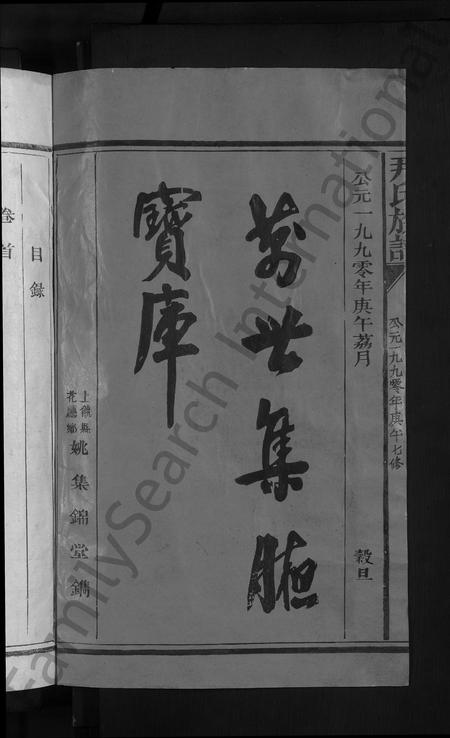 尹氏族譜
公元一九九零年庚午七修
公元一九九零年庚午荔月
穀旦
萬世集腋
寶庫
上饒縣
花廳鄉
姚集錦堂鐫
目錄
卷首
FamilySearch International